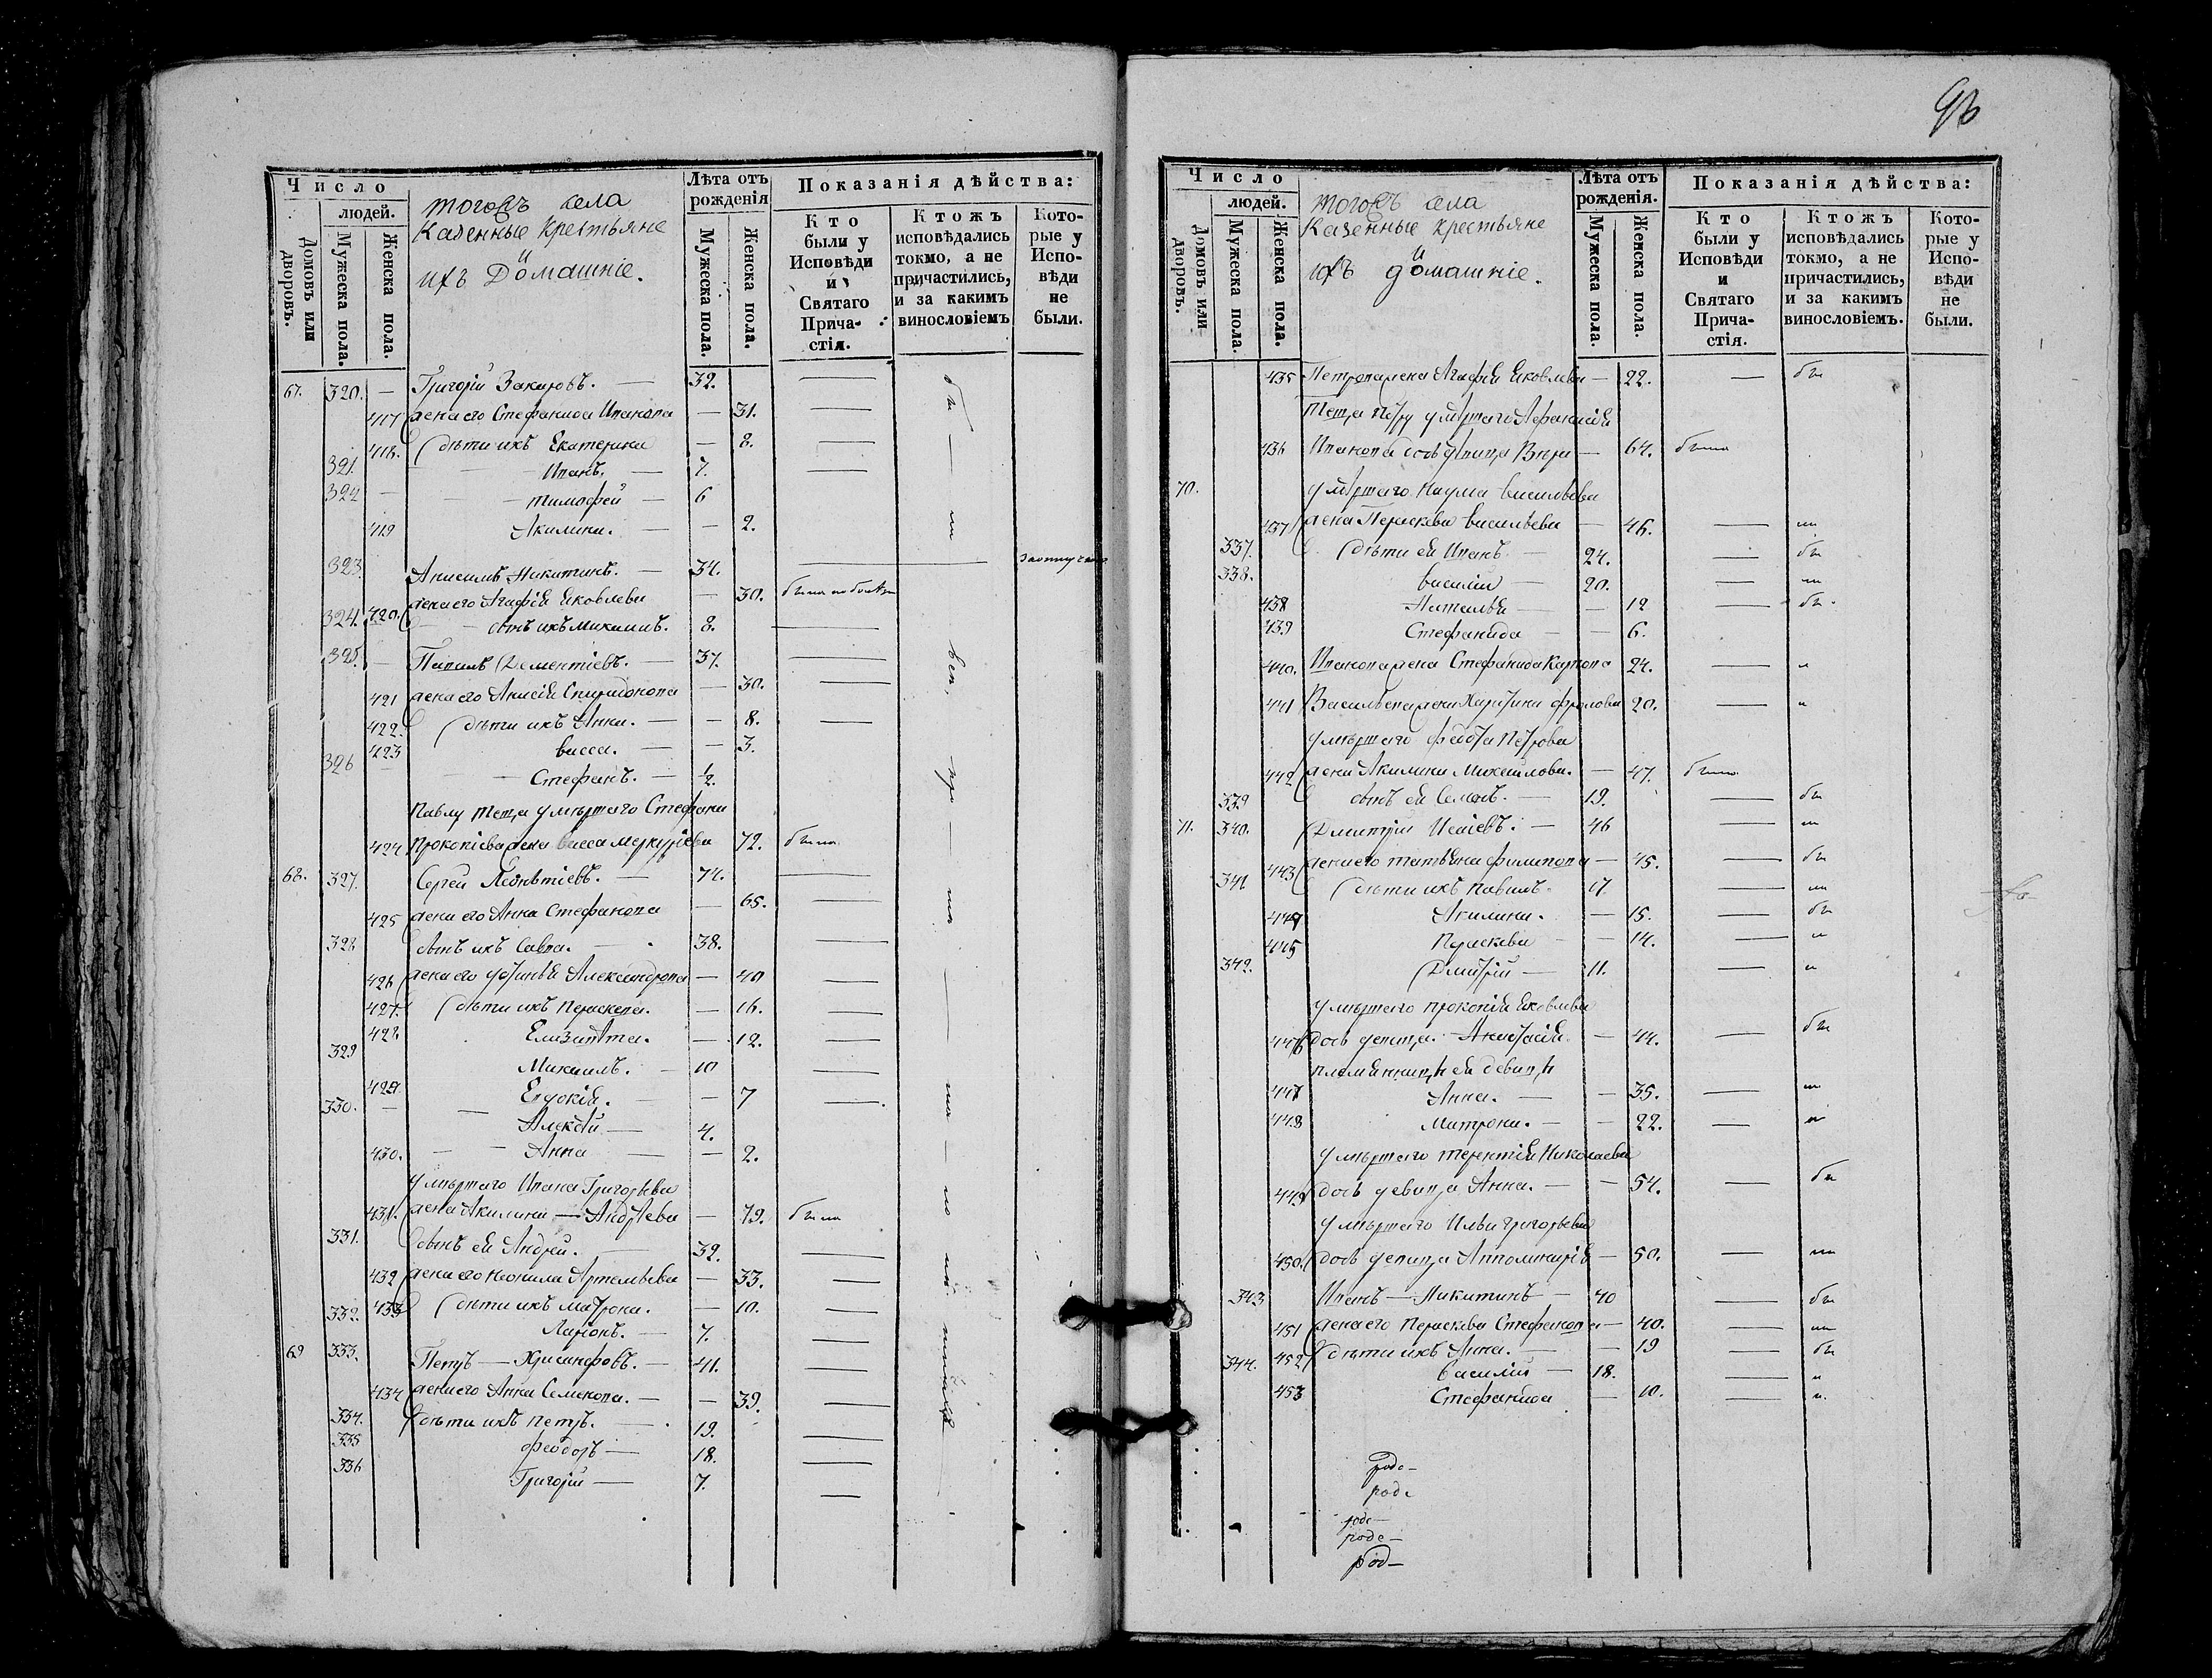 Число
людей.
Домовъ или дворовъ.
Мужеска пола.
Женска пола.
тогожъ села
Казенные крестьяне
и
ихъ Домашніе.
Лѣта отъ рожденія
Мужеска пола.
Женска пола.
Показанія дѣйства:
Кто были у Исповѣди и Святаго Причастія.
Ктожъ исповѣдались токмо, а не причастились, и за какимъ винословіемъ
Которые у Исповѣди не были.
67. 320. — Григорій — 32.
417 жена его Стефанида Иванова — 31.
418. дѣти ихъ Екатерина — 8.
321. Иванъ. — 7.
322 — Тимофей — 6
419 Акилина. — — 2.
323. Анисимъ Никитинъ. — 34.
420. жена его Агафія Яковлева — 30.
324. сынъ ихъ Михаилъ. 8.
325. — Павилъ Дементіевъ. — 37.
421 жена его Анисія Спиридонова — 30.
422. дѣти ихъ Анна. — — 8.
423 васса. — — 3.
326 — Стефанъ. — 1/2.
Павлу теща умершаго Стефана
424 Прокопіева жена васса меркуріева 72. была
68. 327. Сергей — 74.
425 жена его Анна Стефанова — 65.
328 сынъ ихъ Савва. — 38.
426 жена его Фотинія Александрова — 40
427. дѣти ихъ Параскева. — 16.
428 Елизавета. — 12.
329 Михаилъ. — 10
429 Евдокія. — — 7
330. — Алексѣй — 4.
430. — Анна — — 2.
умершаго Ивана Григорьева
431. жена Акилина — Андреева — 79. была
331. сынъ ея Андрей. — 32.
432 жена его Неонила Артемьева — 33.
433 дѣти ихъ Матрона. — 10.
332. Ларіонъ. — 7.
69 333. Петръ — Хрисанфовъ. — 41.
434 жена его Анна Семенова. — — 39.
334. дѣти ихъ Петръ. — 19.
335 Феодоръ — 18.
336 Григорій — 7.
Число
людей.
Домовъ или дворовъ.
Мужеска пола.
Женска пола.
тогожъ села
Казенные крестьяне
и
ихъ домашніе.
Лѣта отъ рожденія.
Мужеска пола.
Женска пола.
Показанія дѣйства:
Кто были у Исповѣди и Святаго Причастія.
Ктожъ исповѣдались токмо, а не причастились, и за какимъ винословіемъ.
Которые у Исповѣди не были.
435 Петрова жена Агафія Яковлева — 22.
Теща Петру умершаго Афанасія
436 Иванова дочь — 64. была
70. умершаго Наума васильева
437 жена Параскева васильева — 46.
337. дѣти ея Иванъ — 24.
338. василій — 20.
438 Наталья — — 12
439 Стефанида — — 6.
440. Иванова жена Стефанида Карпова 24.
441 Васильева жена Харитина фролова 20.
умершаго Федота Петрова
442 жена Акилина Михаилова. — 47. была
339 сынъ ея Семенъ. — 19.
71. 340. Дмитрій Исаіевъ. — 46
443 жена его татьяна филипова — 45.
341 дѣти ихъ Павилъ. 17
444 Акилина. — 15.
445 Параскева — — 14.
342. Дмитрій — 11.
умершаго Прокопія Яковлева
446 дочь девица Анастасія. — 44.
племянницы ея девицы
447 Анна. — — 35.
448 Матрона. — — 22.
умершаго терентія Николаева
449 дочь девица Анна. — — 54.
умершаго Ильи Григорьева
450. дочь девица Апполинарія — 50.
343 Иванъ — Никитинъ — 40
451 жена его Параскева Стефанова — 40.
452 дѣти ихъ Анна. — — 19
344. василій — 18.
453 Стефанида — 10.